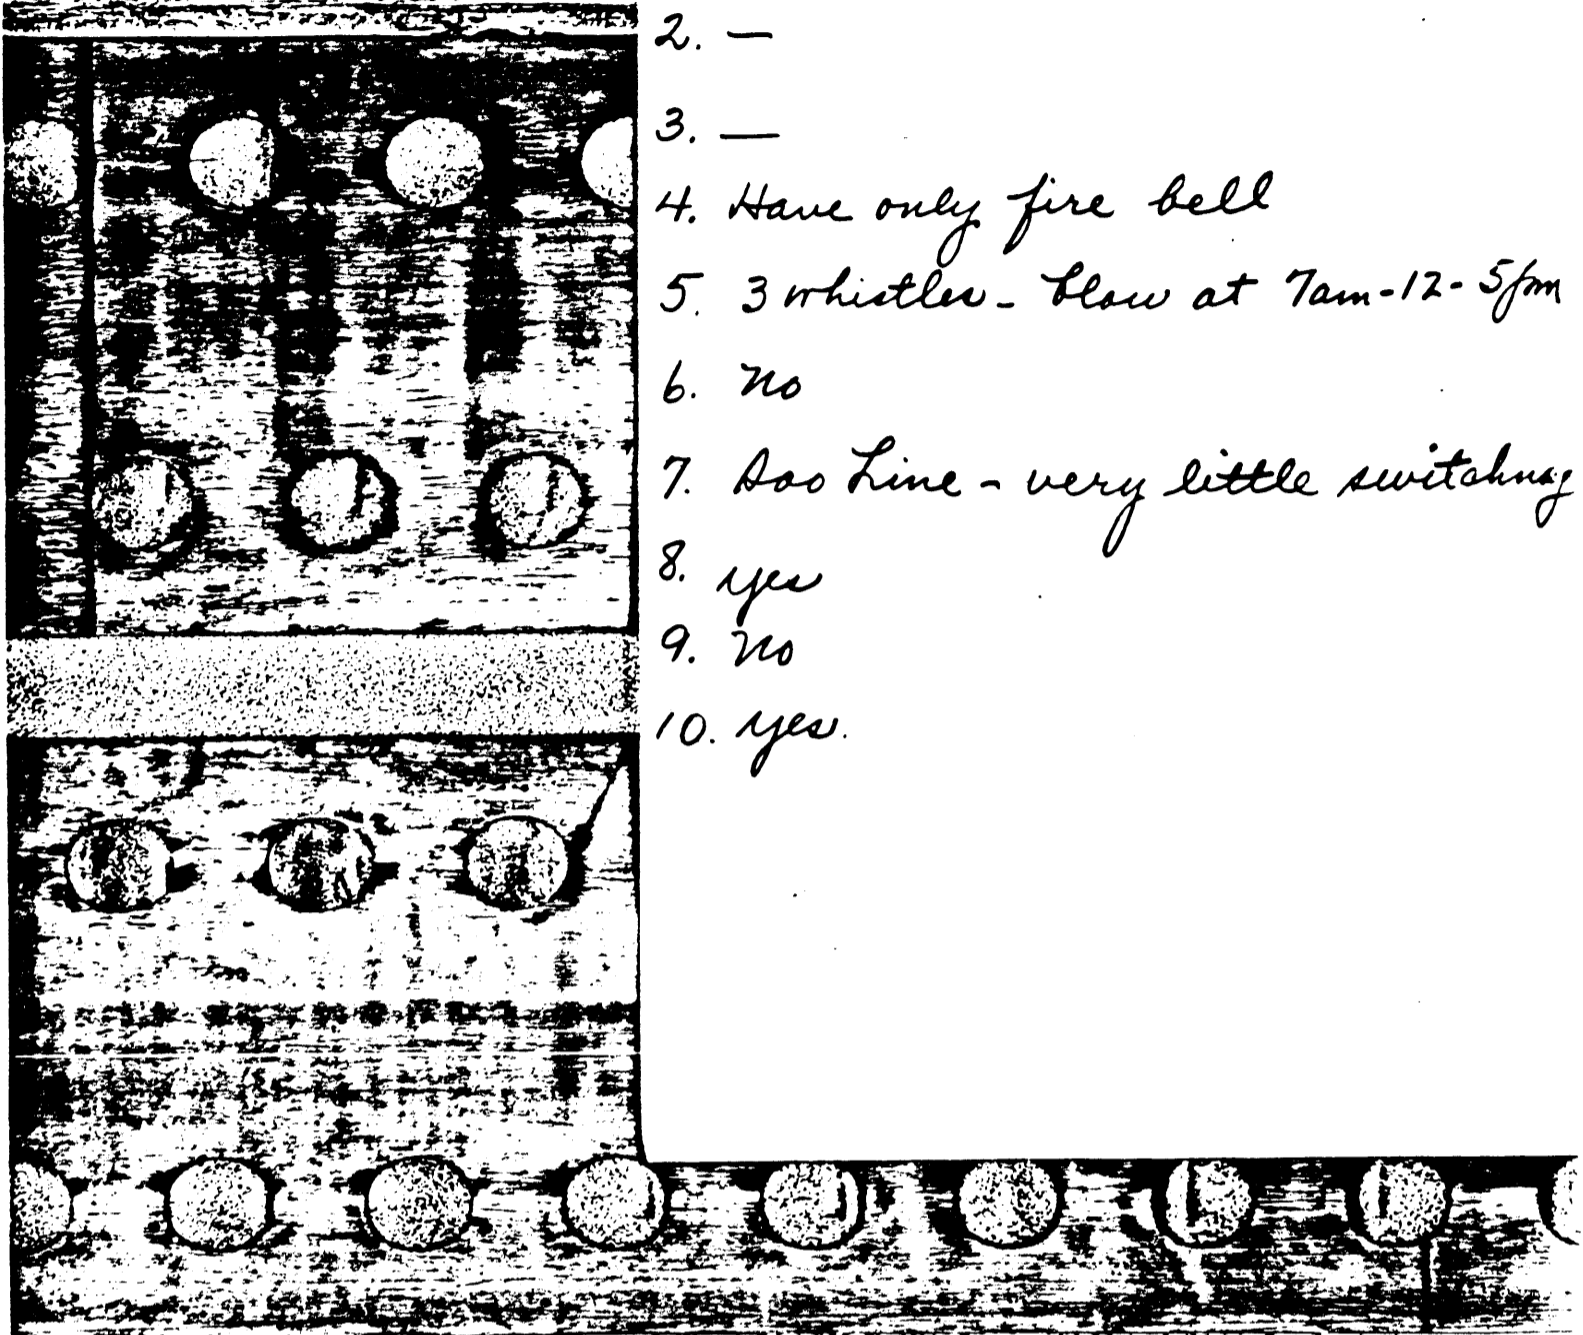 2. —
3. —
4. Have only fire bell
5. 3 whistles - blow at 7am-12-5pm
6. No
7. Soo Line - very little switching
8. yes
9. No
10. yes.